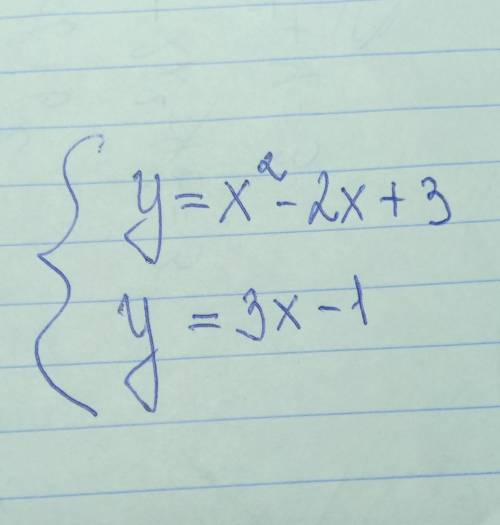 y = x² - 2x + 3
y = 3x - 1